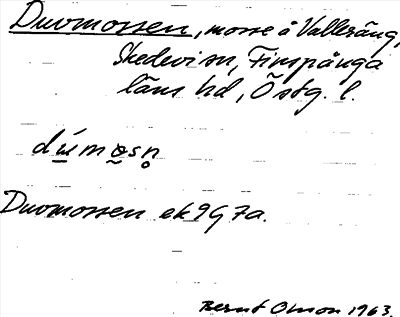 Duvmossen, mosse å Vallsäng,
Skedevi sn, Finspånga
läns hd, Östg. l.
dúmɷsn̥
Duvmossen ek 9G 7a.
Bernt Olsson 1963.